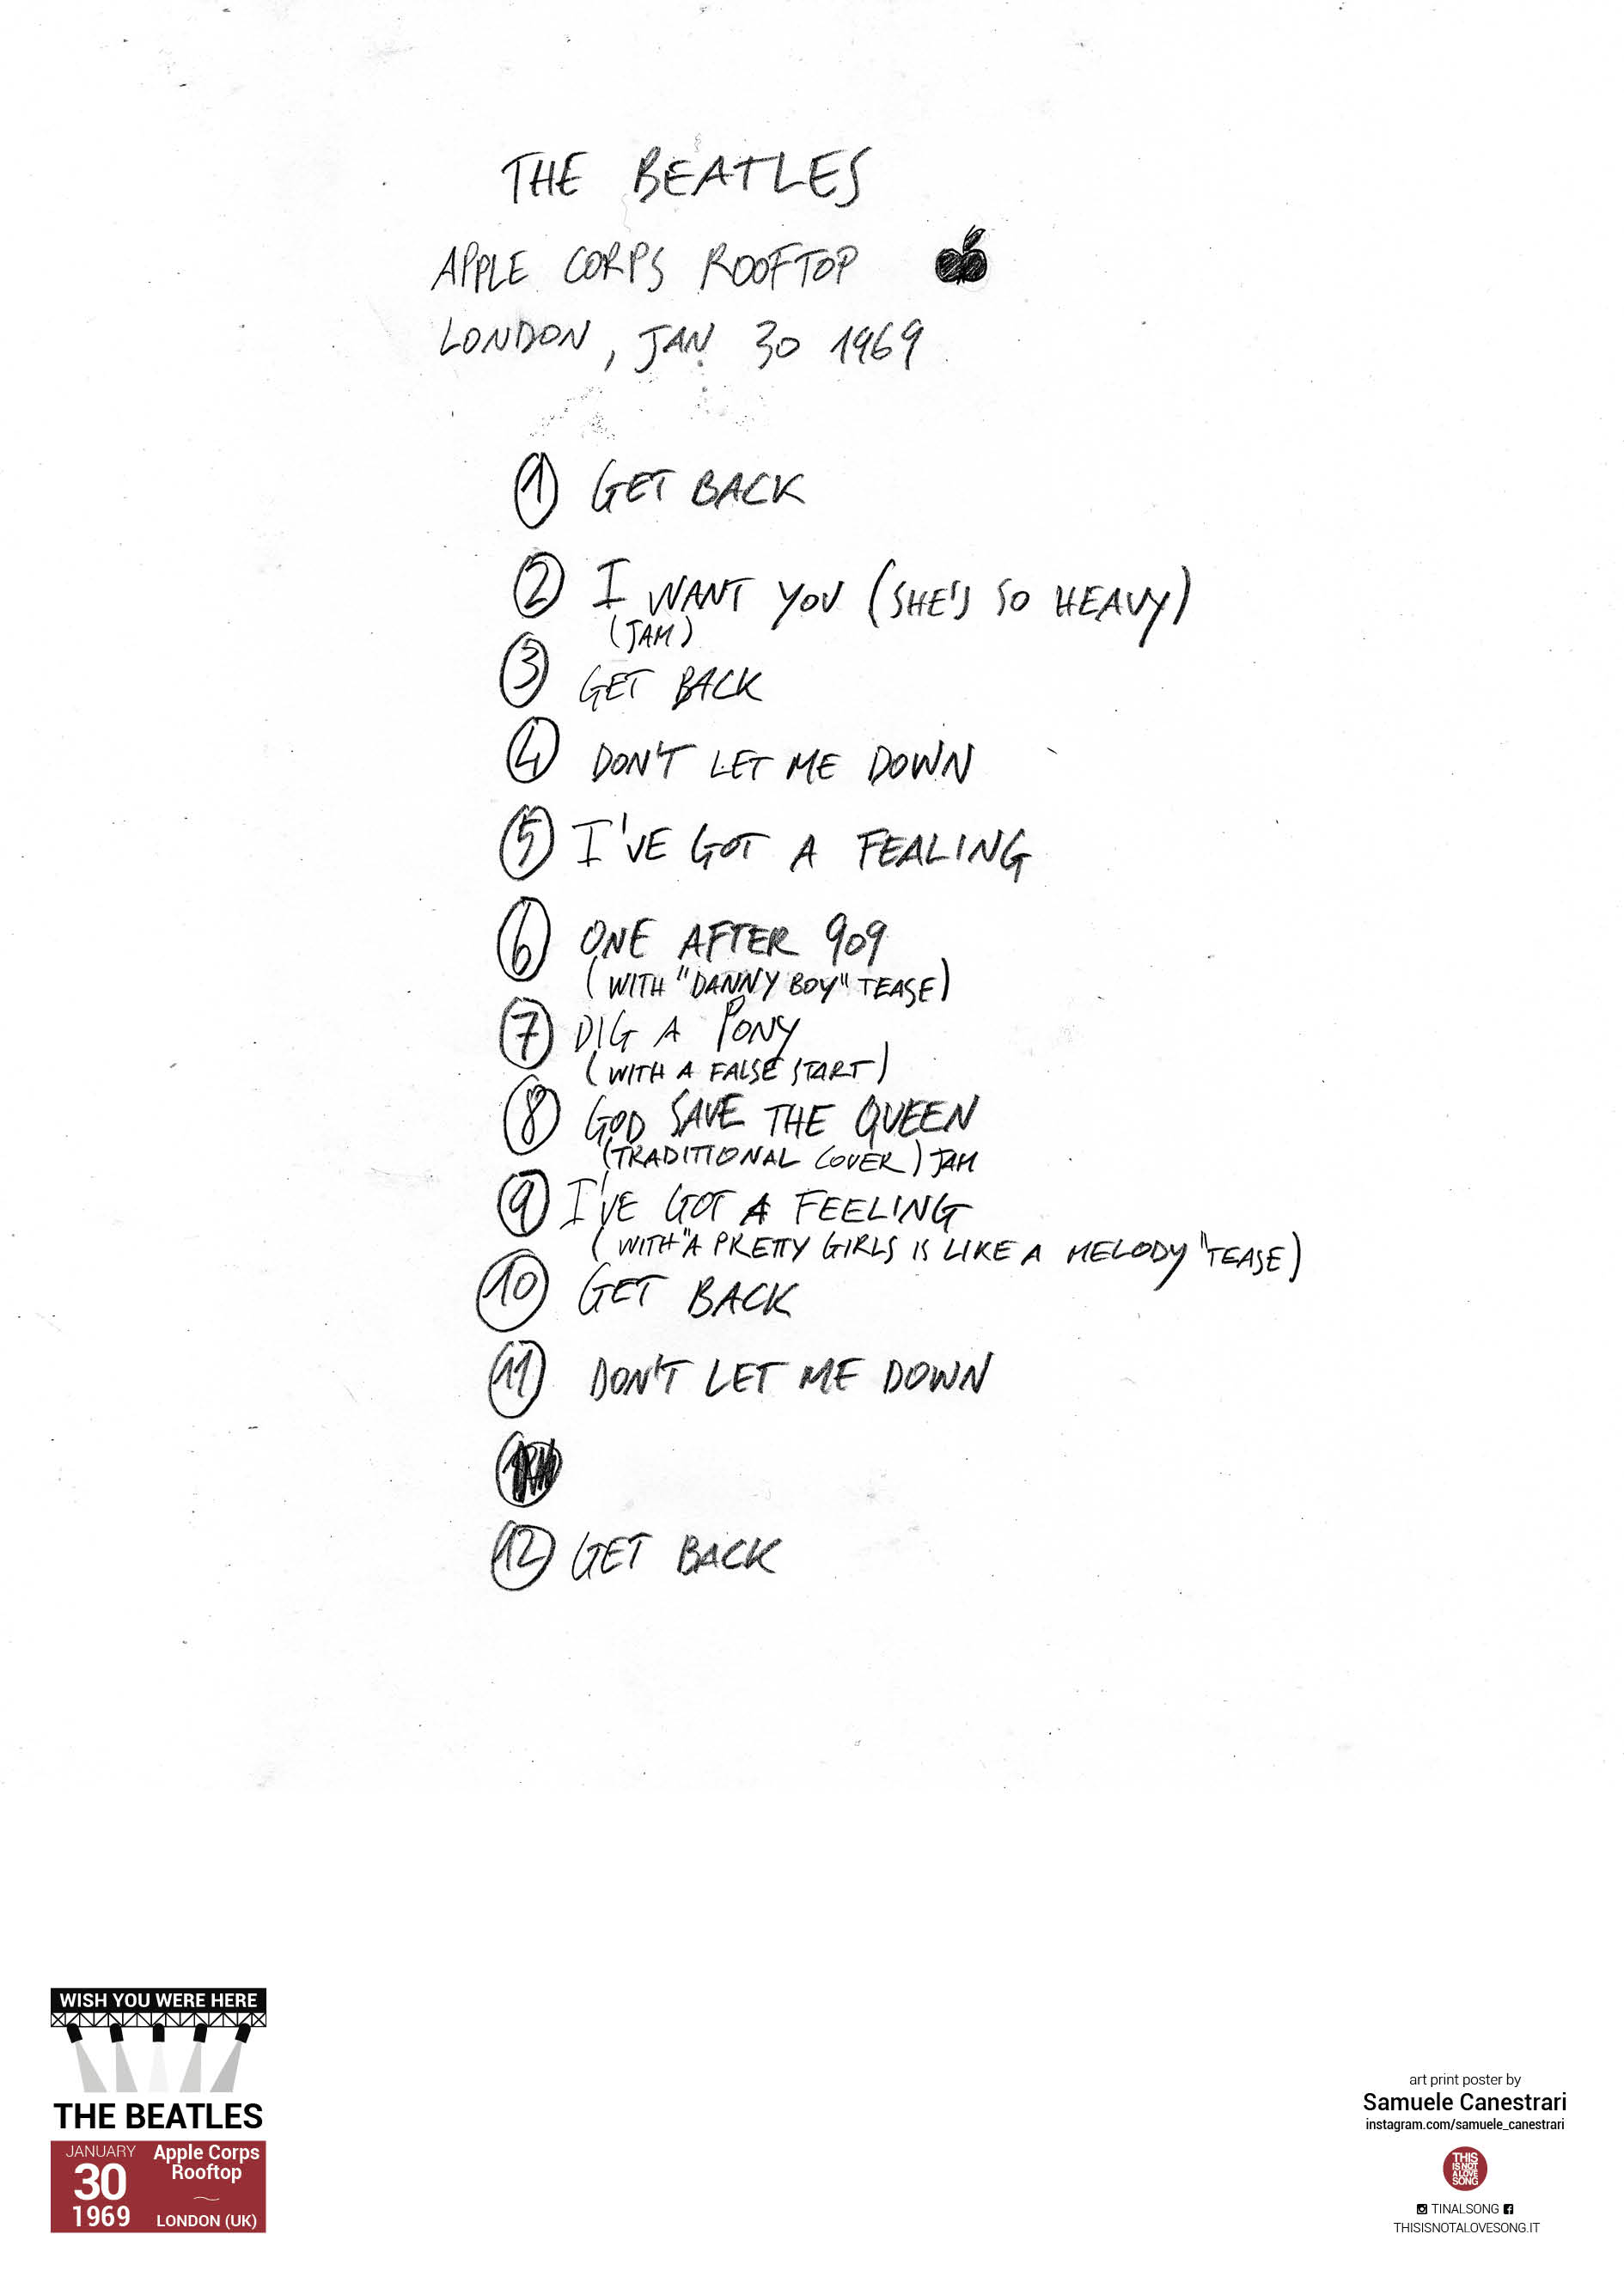 THE BEATLES
APPLE CORPS ROOFTOP
LONDON, JAN 30 1969
1 GET BACK
2 I WANT YOU (SHE'S SO HEAVY)
(JAM)
3 GET BACK
4 DON'T LET ME DOWN
5 I'VE GOT A FEALING
6 ONE AFTER 909
(WITH "DANNY BOY" TEASE)
7 DIG A PONY
(WITH A FALSE START)
8 GOD SAVE THE QUEEN
(TRADITIONAL COVER) JAM
9 I'VE GOT A FEELING
(WITH "A PRETTY GIRLS IS LIKE A MELODY" TEASE)
10 GET BACK
11 DON'T LET ME DOWN
12 GET BACK
WISH YOU WERE HERE
THE BEATLES
JANUARY
30
1969
Apple Corps
Rooftop
LONDON (UK)
art print poster by
Samuele Canestrari
instagram.com/samuele_canestrari
THIS
IS NOT
A LOVE
SONG
TINALSONG
THISISNOTALOVESONG.IT